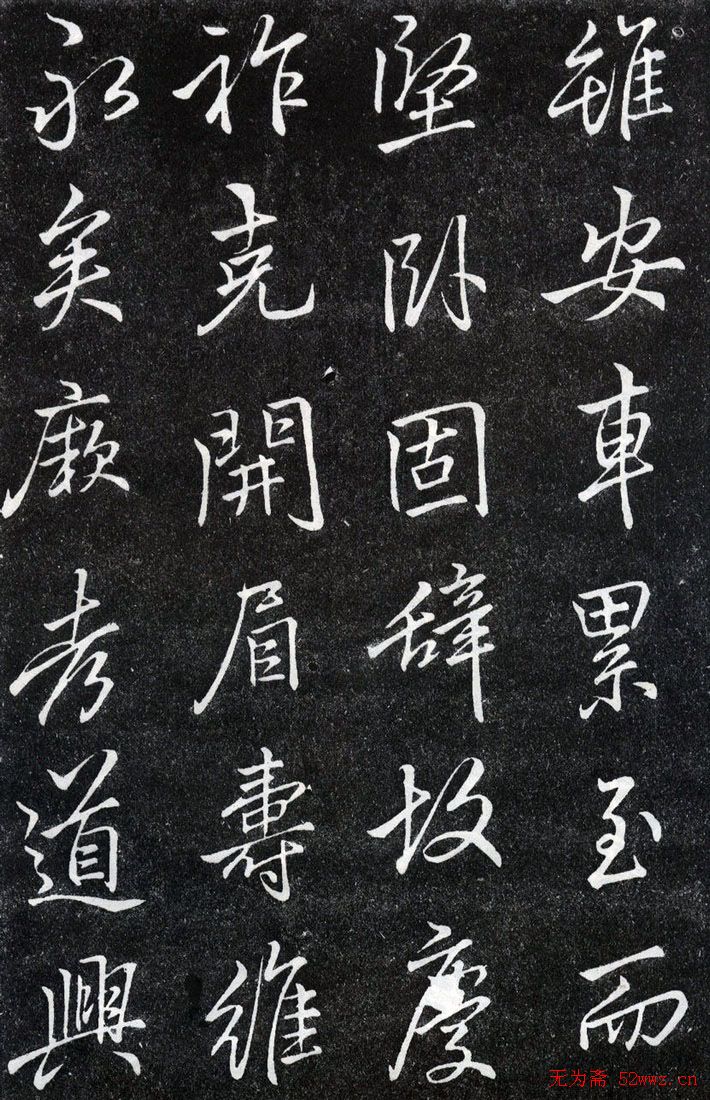 雖安車累至而
堅卧固辭故慶
祚克開眉壽維
永矣厥考道興
无为斋 52wwz.cn